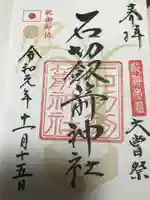 奉拝
大嘗祭
石切劔箭神社
祝御即位
令和元年十一月十五日